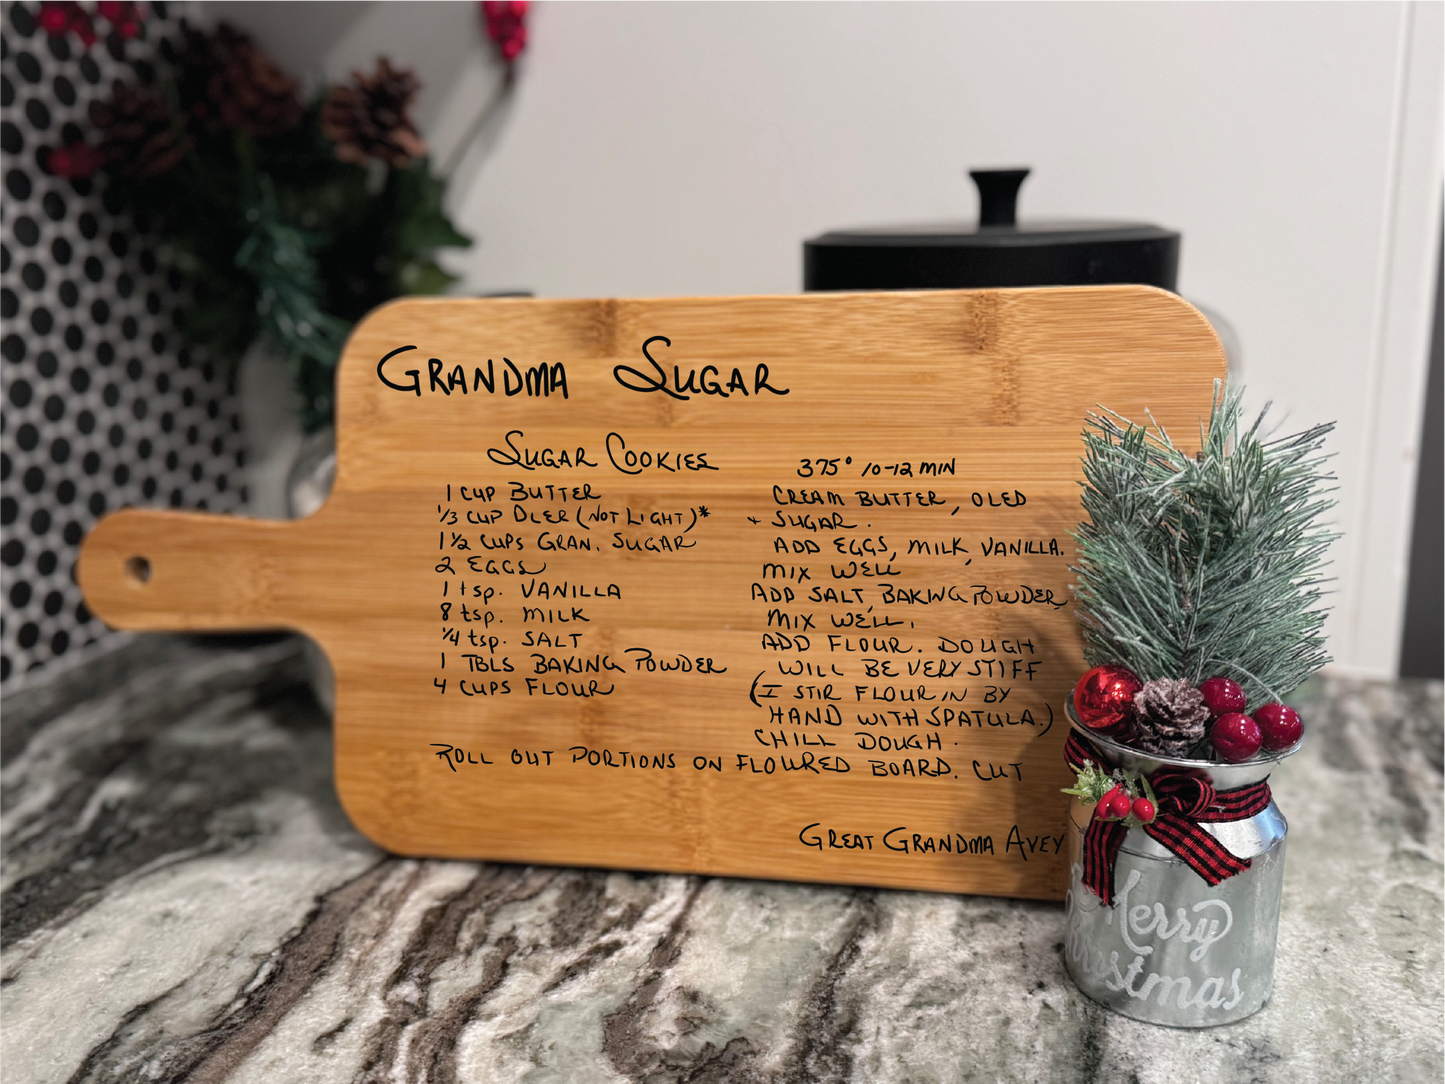 GRANDMA SUGAR
SUGAR COOKIES
1 CUP BUTTER
1/3 CUP OLEO (NOT LIGHT)*
1 1/2 CUPS GRAN. SUGAR
2 EGGS
1 tsp. VANILLA
8 tsp. MILK
1/4 tsp. SALT
1 TBLS BAKING POWDER
4 CUPS FLOUR
375° 10-12 MIN
CREAM BUTTER, OLEO
+ SUGAR.
ADD EGGS, MILK, VANILLA.
MIX WELL
ADD SALT, BAKING POWDER,
MIX WELL.
ADD FLOUR. DOUGH
WILL BE VERY STIFF
(I STIR FLOUR IN BY
HAND WITH SPATULA.)
CHILL DOUGH.
ROLL OUT PORTIONS ON FLOURED BOARD. CUT
GREAT GRANDMA AVEY
Merry
Christmas